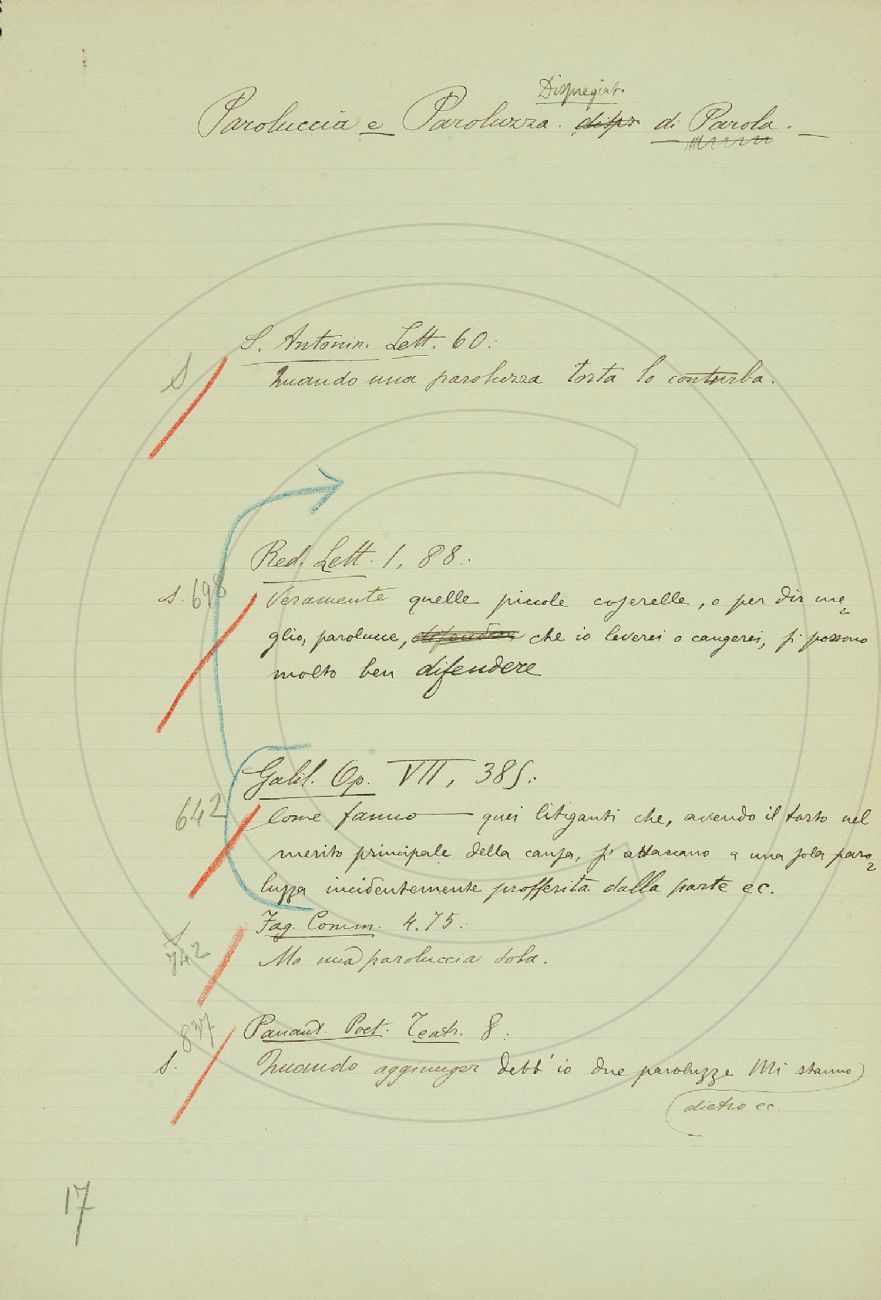 Dispregiat.
Paroluccia e Paroluzza. dispr di Parola. —
S. Antonin. Lett. 60:
S
Quando una paroluzza torta lo conturba.
Red. Lett. 1, 88:
s. 698
Veramente quelle piccole coserelle, o per dir me=
glio, parolucce, difendere che io leverei o cangerei, si possono
molto ben difendere
Galil. Op. VII, 385:
642
Come fanno — quei litiganti che, avendo il torto nel
merito principale della causa, si attaccano a una sola paro=
luzza incidentemente profferita dalla parte ec.
Fag. Comm. 4.75:
742
Ma una paroluccia sola.
Panant. Poet. Teatr. 8:
837
s.
Quando aggiunger debb' io due paroluzze Mi stanno
dietro ec.
17